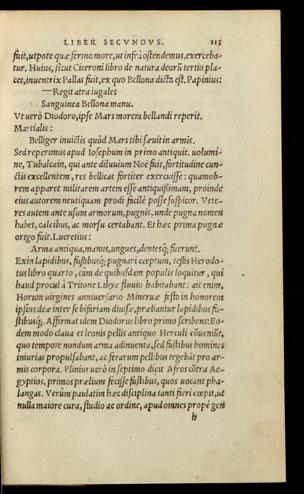 LIBER SECVNDVS. 113
fuit, utpote quæ ferino more, ut infrà ostendemus, exerceba-
tur. Huius, sicut Ciceroni libro de natura deorū tertio pla-
cet, inuentrix Pallas fuit, ex quo Bellona dicta est. Papinius:
—Regit atra iugales
Sanguinea Bellona manu.
Vt uerò Diodoro, ipse Mars morem bellandi reperit.
Martialis:
Belliger inuictis quòd Mars tibi sæuit in armis.
Sed reperimus apud Iosephum in primo antiquit. uolumi-
ne, Tubalcain, qui ante diluuium Noë fuit, fortitudine cun-
ctis excellentem, res bellicas fortiter exercuisse: quamob-
rem apparet militarem artem esse antiquißimam, proinde
eius autorem neutiquam prodi facilè posse suspicor. Vete-
res autem ante usum armorum, pugnis, unde pugna nomen
habet, calcibus, ac morsu certabant. Et hæc prima pugnæ
origo fuit. Lucretius:
Arma antiqua, manus, ungues, dentesq́; fuerunt.
Exin lapidibus, fustibusq́; pugnari cœptum, testis Herodo-
tus libro quarto, cùm de quibusdam populis loquitur, qui
haud procul à Tritone Libyæ fluuio habitabant: ait enim,
Horum uirgines anniuersario Mineruæ festo in honorem
ipsius deæ inter se bifariam diuisæ, præliantur lapidibus fu-
stibusq́;. Affirmat idem Diodorus libro primo scribens: Eo-
dem modo claua et leonis pellis antiquo Herculi cōueniūt,
quo tempore nondum arma adinuenta, sed fustibus homines
iniurias propulsabant, ac ferarum pellibus tegebāt pro ar-
mis corpora. Plinius uerò in septimo dicit Afros cōtra Ae-
gyptios, primos prælium fecisse fustibus, quos uocant pha-
langas. Verùm paulatim hæc disciplina tanti fieri cœpit, ut
nulla maiore cura, studio ac ordine, apud omnes propè gen
h